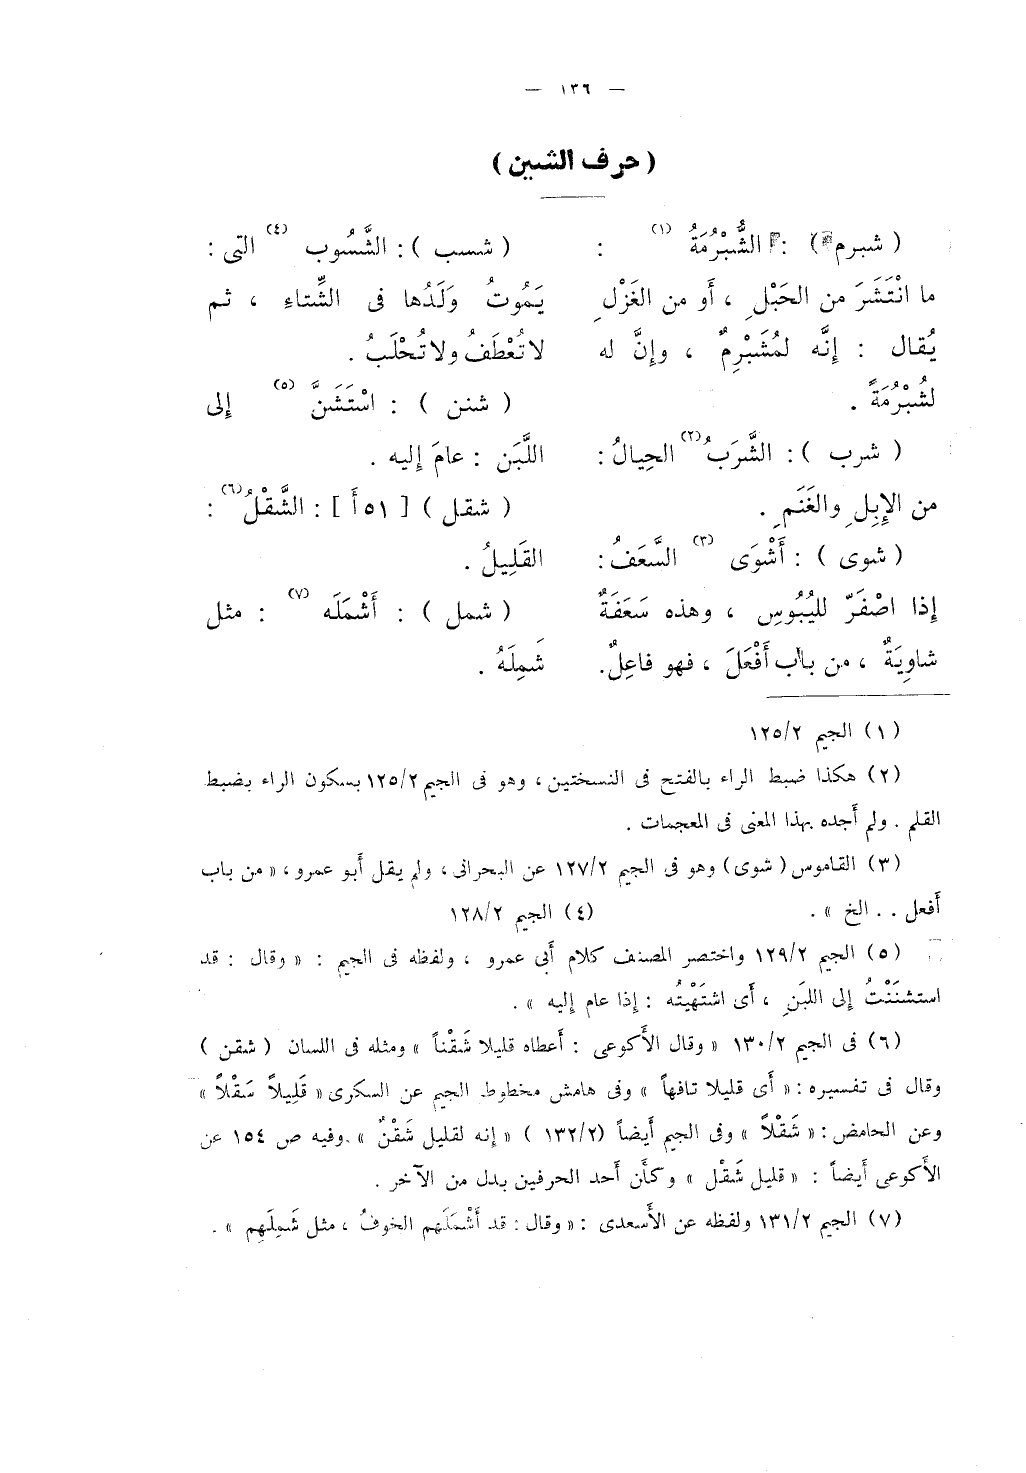 — ١٣٦ —
( حرف الشين )
( شبرم ) : الشُّبْرُمَةُ (١) :
ما انْتَشَرَ من الحَبْلِ ، أَو من الغَزْلِ
يُقال : إِنَّه لمُشَبْرِمٌ ، وإِنَّ له
لشُبْرُمَةً .
( شرب ) : الشَّرَبُ (٢) الحِيالُ :
من الإِبِلِ والغَنَمِ .
( شوى ) : أَشْوَى (٣) السَّعَفُ :
إِذا اصْفَرّ لليُبُوسِ ، وهذه سَعَفَةٌ
شاوِيَةٌ ، من باب أَفْعَلَ ، فهو فاعِلٌ.
( شسب ) : الشَّسُوب (٤) التى :
يَمُوتُ وَلَدُها فى الشِّتاءِ ، ثم
لاتُعْطَفُ ولاتُحْلَبُ .
( شنن ) : اسْتَشَنَّ (٥) إِلى
اللَّبَن : عامَ إِليه .
( شقل ) [ ٥١ أ ] : الشَّقْلُ (٦) :
القَلِيلُ .
( شمل ) : أَشْمَلَه (٧) : مثل
شَمِلَهُ .
(١) الجيم ١٢٥/٢
(٢) هكذا ضبط الراء بالفتح فى النسختين ، وهو فى الجيم ١٢٥/٢ بسكون الراء بضبط
القلم . ولم أجده بهذا المعنى فى المعجمات .
(٣) القاموس ( شوى ) وهو فى الجيم ١٢٧/٢ عن البحرانى ، ولم يقل أبو عمرو ، « من باب
أفعل . . الخ » . (٤) الجيم ١٢٨/٢
(٥) الجيم ١٢٩/٢ واختصر المصنف كلام أبى عمرو ، ولفظه فى الجيم : « وقال : قد
استشنَنْتُ إلى اللبَنِ ، أى اشتَهْيتُه : إذا عام إليه » .
(٦) فى الجيم ١٣٠/٢ « وقال الأَكوعى : أعطاه قليلا شَقْناً » ومثله فى اللسان ( شقن )
وقال فى تفسيره : « أى قليلا تافهاً » وفى هامش مخطوط الجيم عن السكرى « قَلِيلاً سَقْلاً »
وعن الحامض : « شَقْلاً » وفى الجيم أيضاً (١٣٢/٢ ) « إنه لقليل شَقْنٌ » . وفيه ص ١٥٤ عن
الأكوعى أيضاً : « قليل شَقْل » وكأن أحد الحرفين بدل من الآخر .
(٧) الجيم ١٣١/٢ ولفظه عن الأَسعدى : « وقال : قد أَشْمَلَهم الخوفُ ، مثل شَمِلَهِم » .